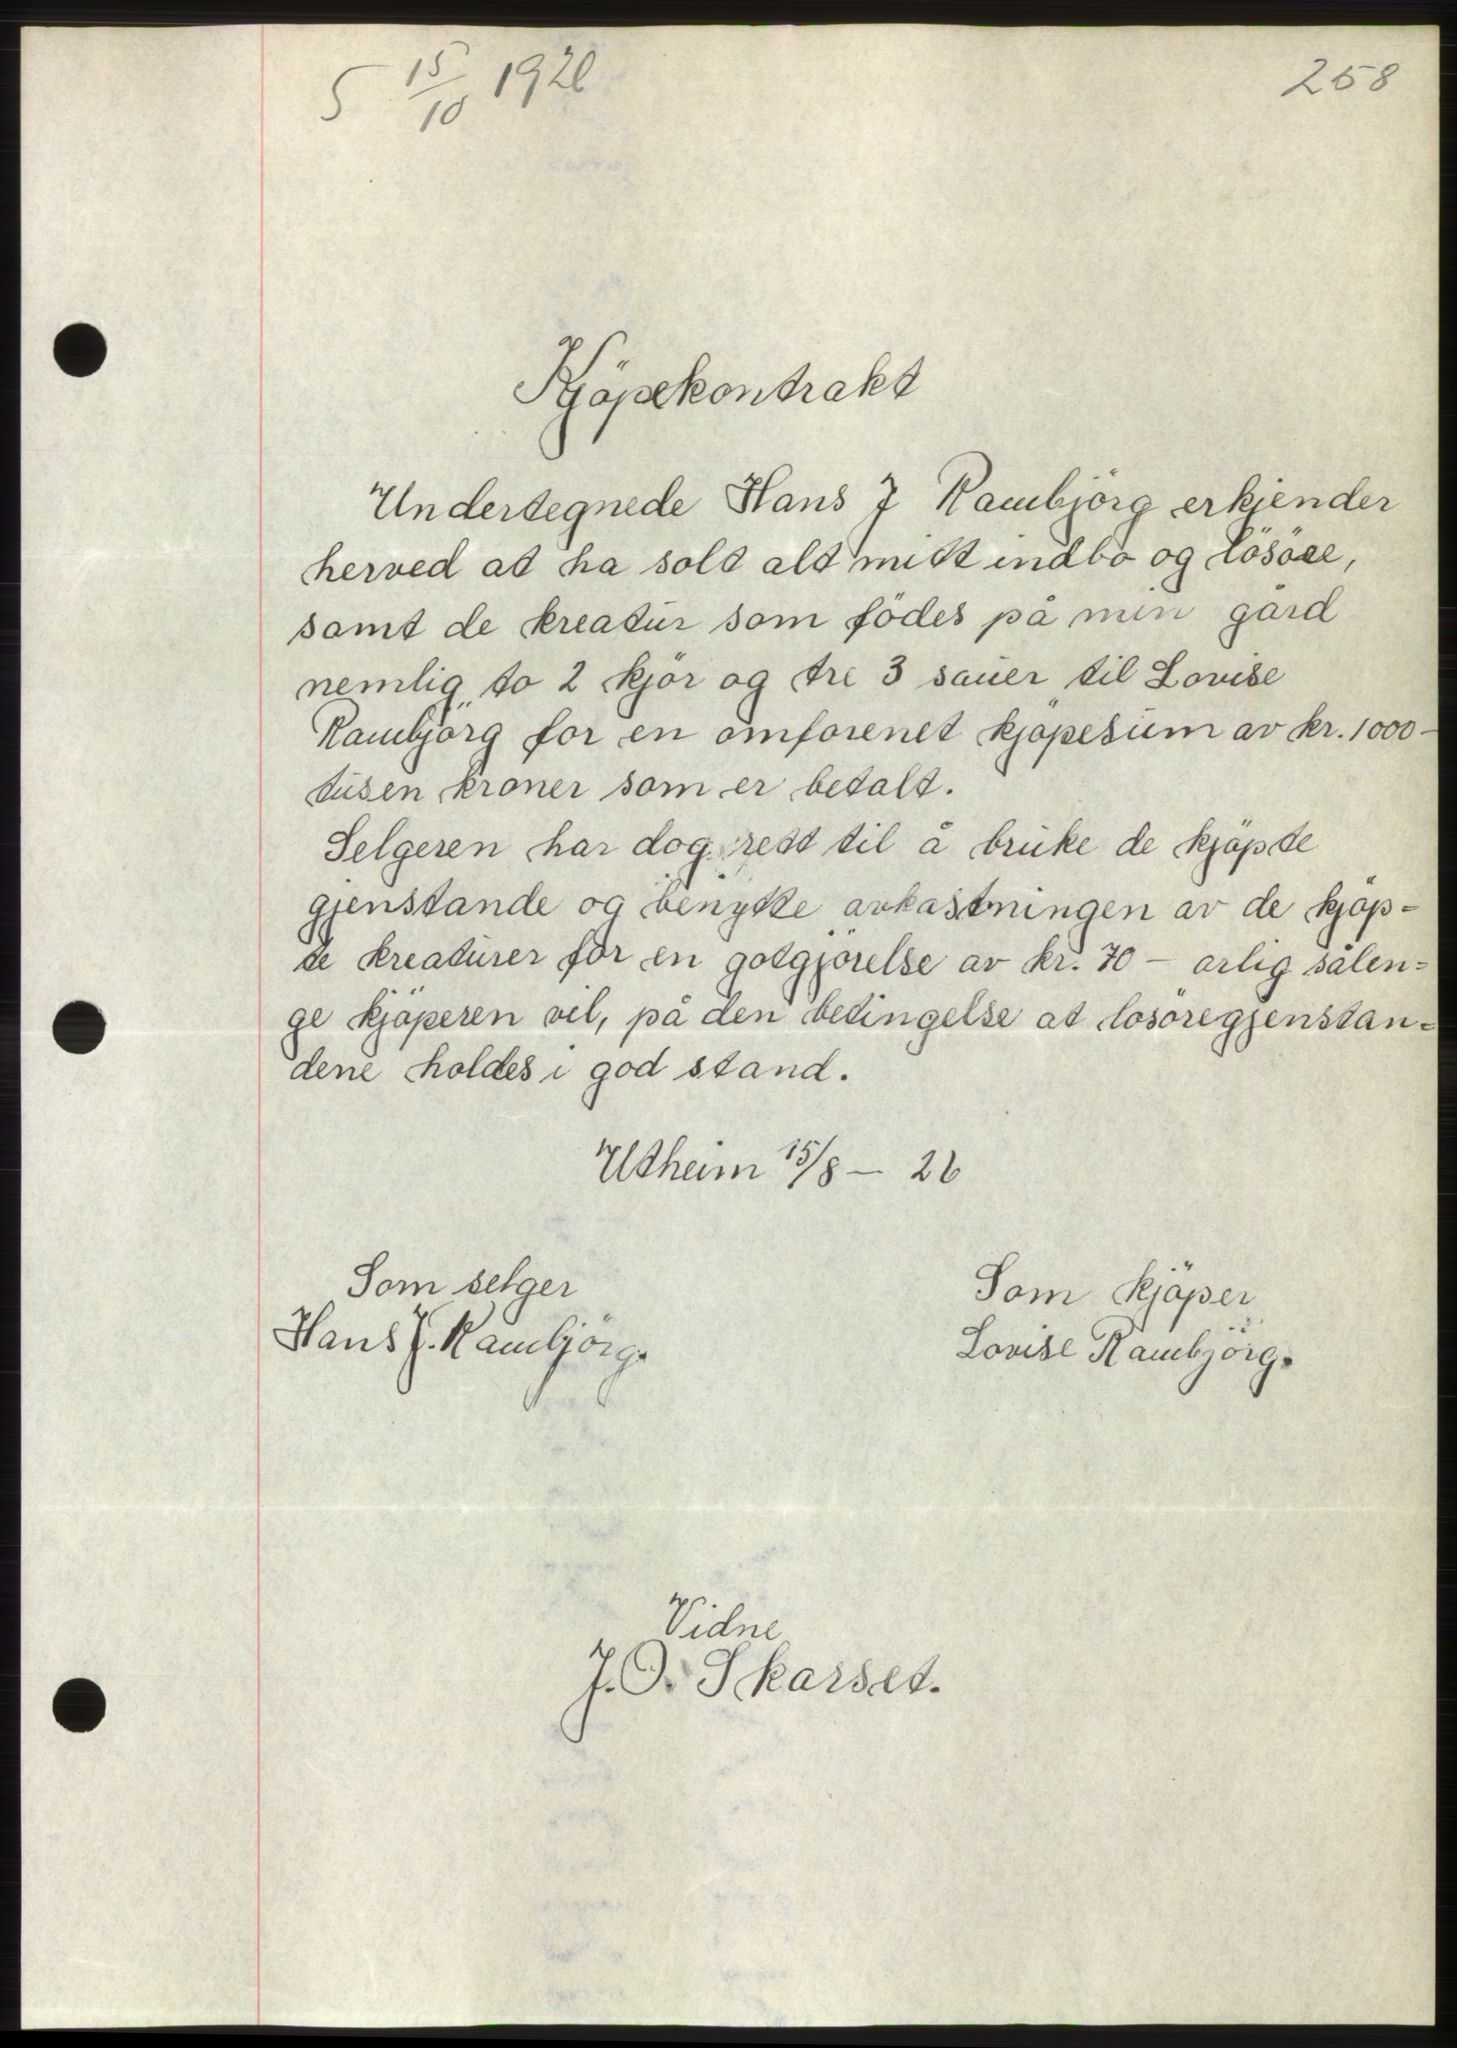 5 15/10 1926
258
Kjöpekontrakt
Undertegnede Hans J Rambjörg erkjender
herved at ha solt alt mitt indbo og lösöre,
samt de kreatur som födes på min gård
nemlig to 2 kjör og tre 3 sauer til Lovise
Rambjörg for en omforenet kjöpesum av kr. 1000-
tusen kroner som er betalt.
Selgeren har dog rett til å bruke de kjöpte
gjenstande og benytte avkastningen av de kjöp-
te kreaturer for en gotgjörelse av kr. 70 - arlig sålen-
ge kjöperen vil, på den betingelse at losöregjenstan-
dene holdes i god stand.
Utheim 15/8 - 26
Som selger
Hans J. Rambjörg.
Som kjöper
Lovise Rambjörg.
Vidne
J. O. Skarset.